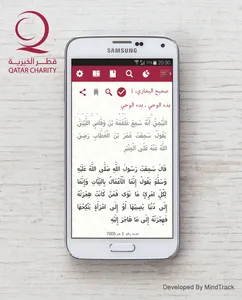 قطر الخيرية
QATAR CHARITY
SAMSUNG
20:30
صحيح البخاري، 1
بدء الوحي ، بدء الوحي
اللَّيْثِيَّ
سَمِعْتُ عُمَرَ بْنَ الْخَطَّابِ رَضِيَ
اللَّهُ عَنْهُ عَلَى الْمِنْبَرِ
قَالَ سَمِعْتُ رَسُولَ اللَّهِ صَلَّى اللَّهُ عَلَيْهِ
وَسَلَّمَ يَقُولُ إِنَّمَا الْأَعْمَالُ بِالنِّيَّاتِ وَإِنَّمَا
لِكُلِّ امْرِئٍ مَا نَوَى فَمَنْ كَانَتْ هِجْرَتُهُ
إِلَى دُنْيَا يُصِيبُهَا أَوْ إِلَى امْرَأَةٍ يَنْكِحُهَا
فَهِجْرَتُهُ إِلَى مَا هَاجَرَ إِلَيْهِ
Developed By MindTrack